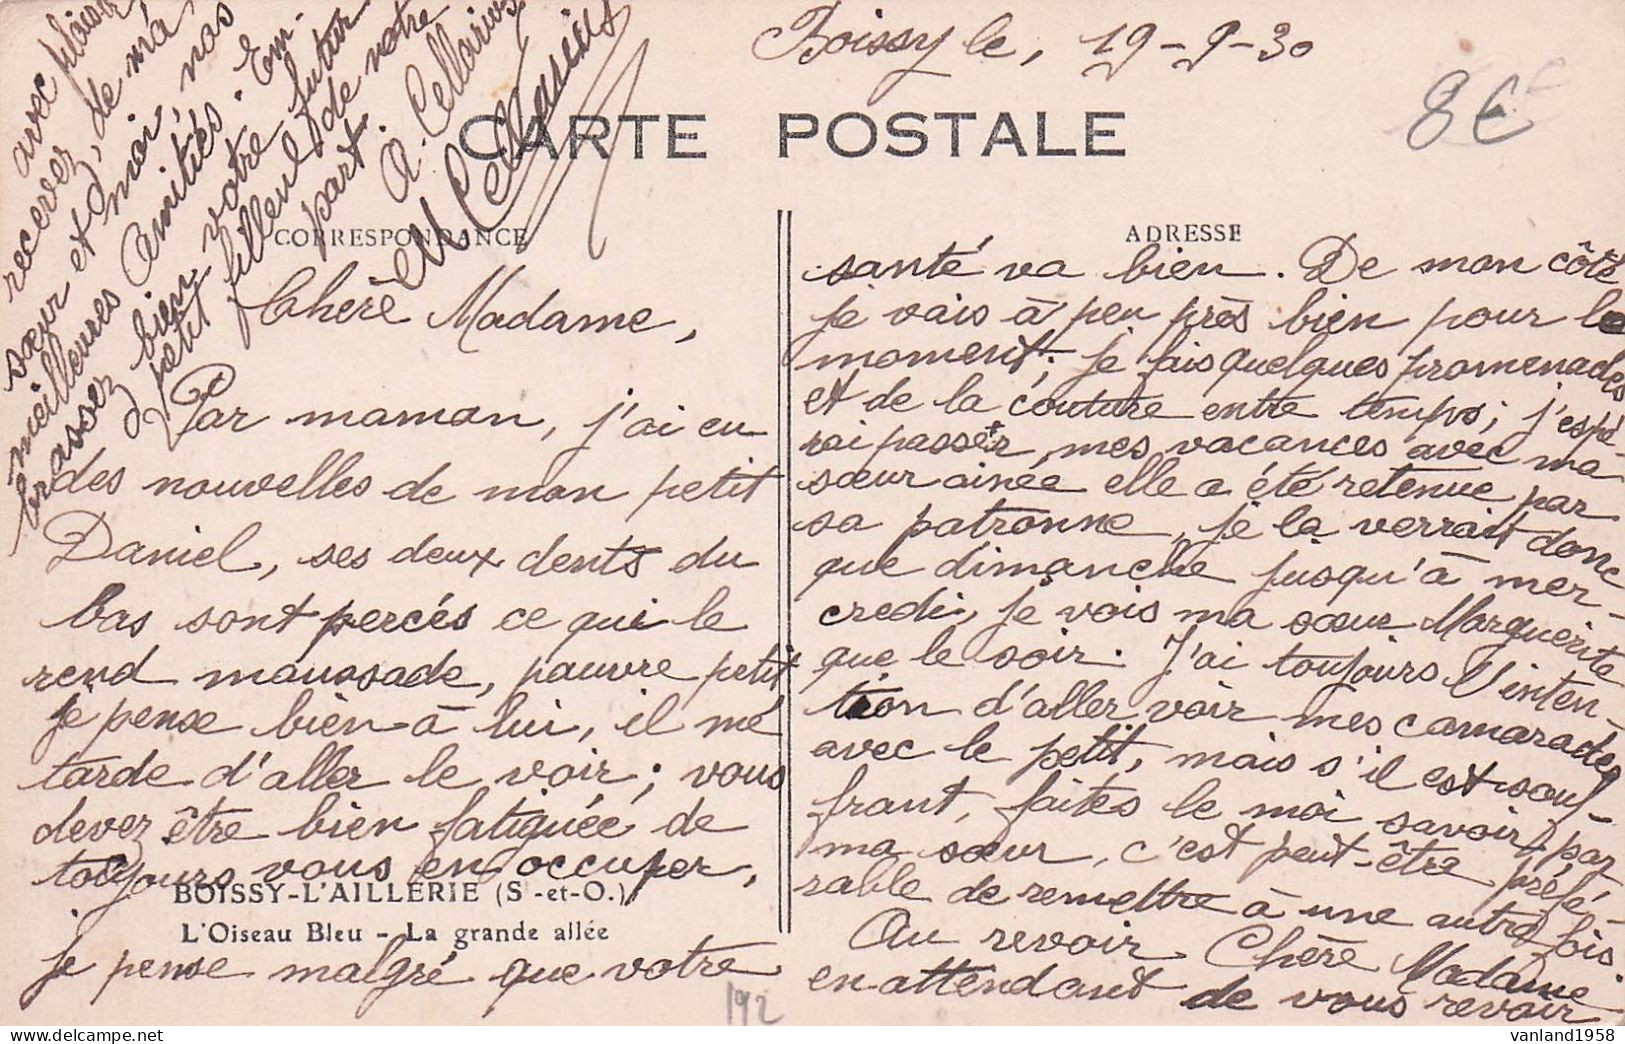 Boissy le, 19-9-30
8€
CARTE POSTALE
CORRESPONDANCE
ADRESSE
Chère Madame,
Par maman, j'ai eu
des nouvelles de mon petit
Daniel, ses deux dents du
bas sont percés ce qui le
rend maussade, pauvre petit
je pense bien à lui, il me
tarde d'aller le voir; vous
devez être bien fatiguée de
toujours vous en occuper,
BOISSY-L'AILLERIE (S-et-O.)
L'Oiseau Bleu - La grande allée
je pense malgré que votre
192
santé va bien. De mon côté
je vais à peu près bien pour le
moment; je fais quelques promenades
et de la couture entre temps; j'espé-
rai passer, mes vacances avec ma
sœur ainée elle a été retenue par
sa patronne, je la verrait donc
que dimanche jusqu'à mer-
credi, je vois ma sœur Marguerite
que le soir. J'ai toujours l'inten-
tion d'aller voir mes camarades
avec le petit, mais s'il est souf-
frant, faites le moi savoir par
ma sœur, c'est peut-être préfé-
rable de remettre à une autre fois.
Au revoir Chère Madame
en attendant de vous revoir
avec plaisir
recevez, de ma
sœur et moi, nos
meilleures Amitiés. Em-
brassez bien votre futur
petit filleul de notre
part.
A. Cellarius
M Cellarius
vanland1958